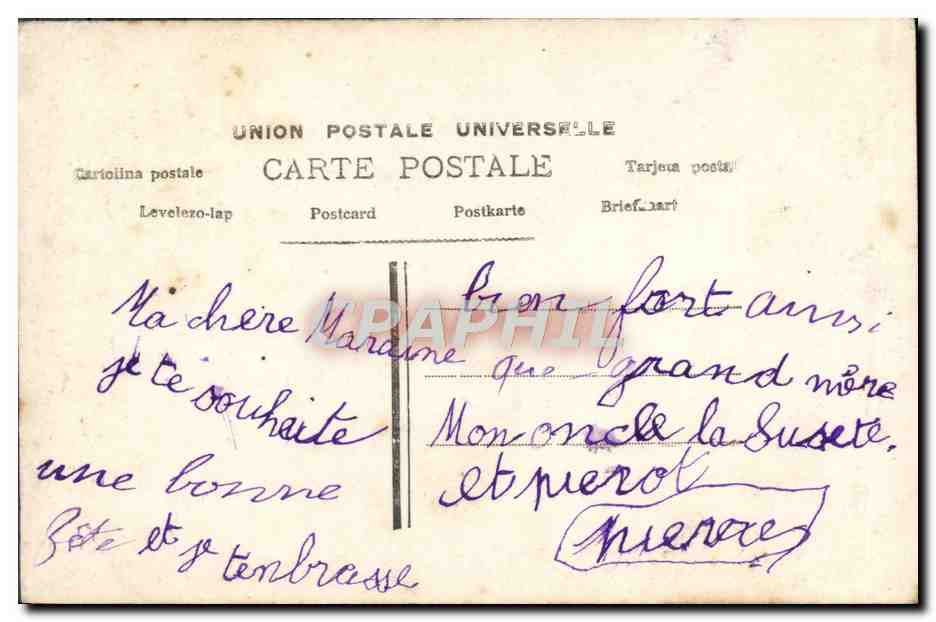 UNION POSTALE UNIVERSELLE
Cartolina postale CARTE POSTALE Tarjeta postal
Levelezo-lap Postcard Postkarte Briefkaart
CPAPHIL
Ma chère Maraine
je te souhaite
une bonne
fête et je tenbrasse
bien fort ainsi
que grand mère
Mon oncle la Susete.
et pierot
pierre